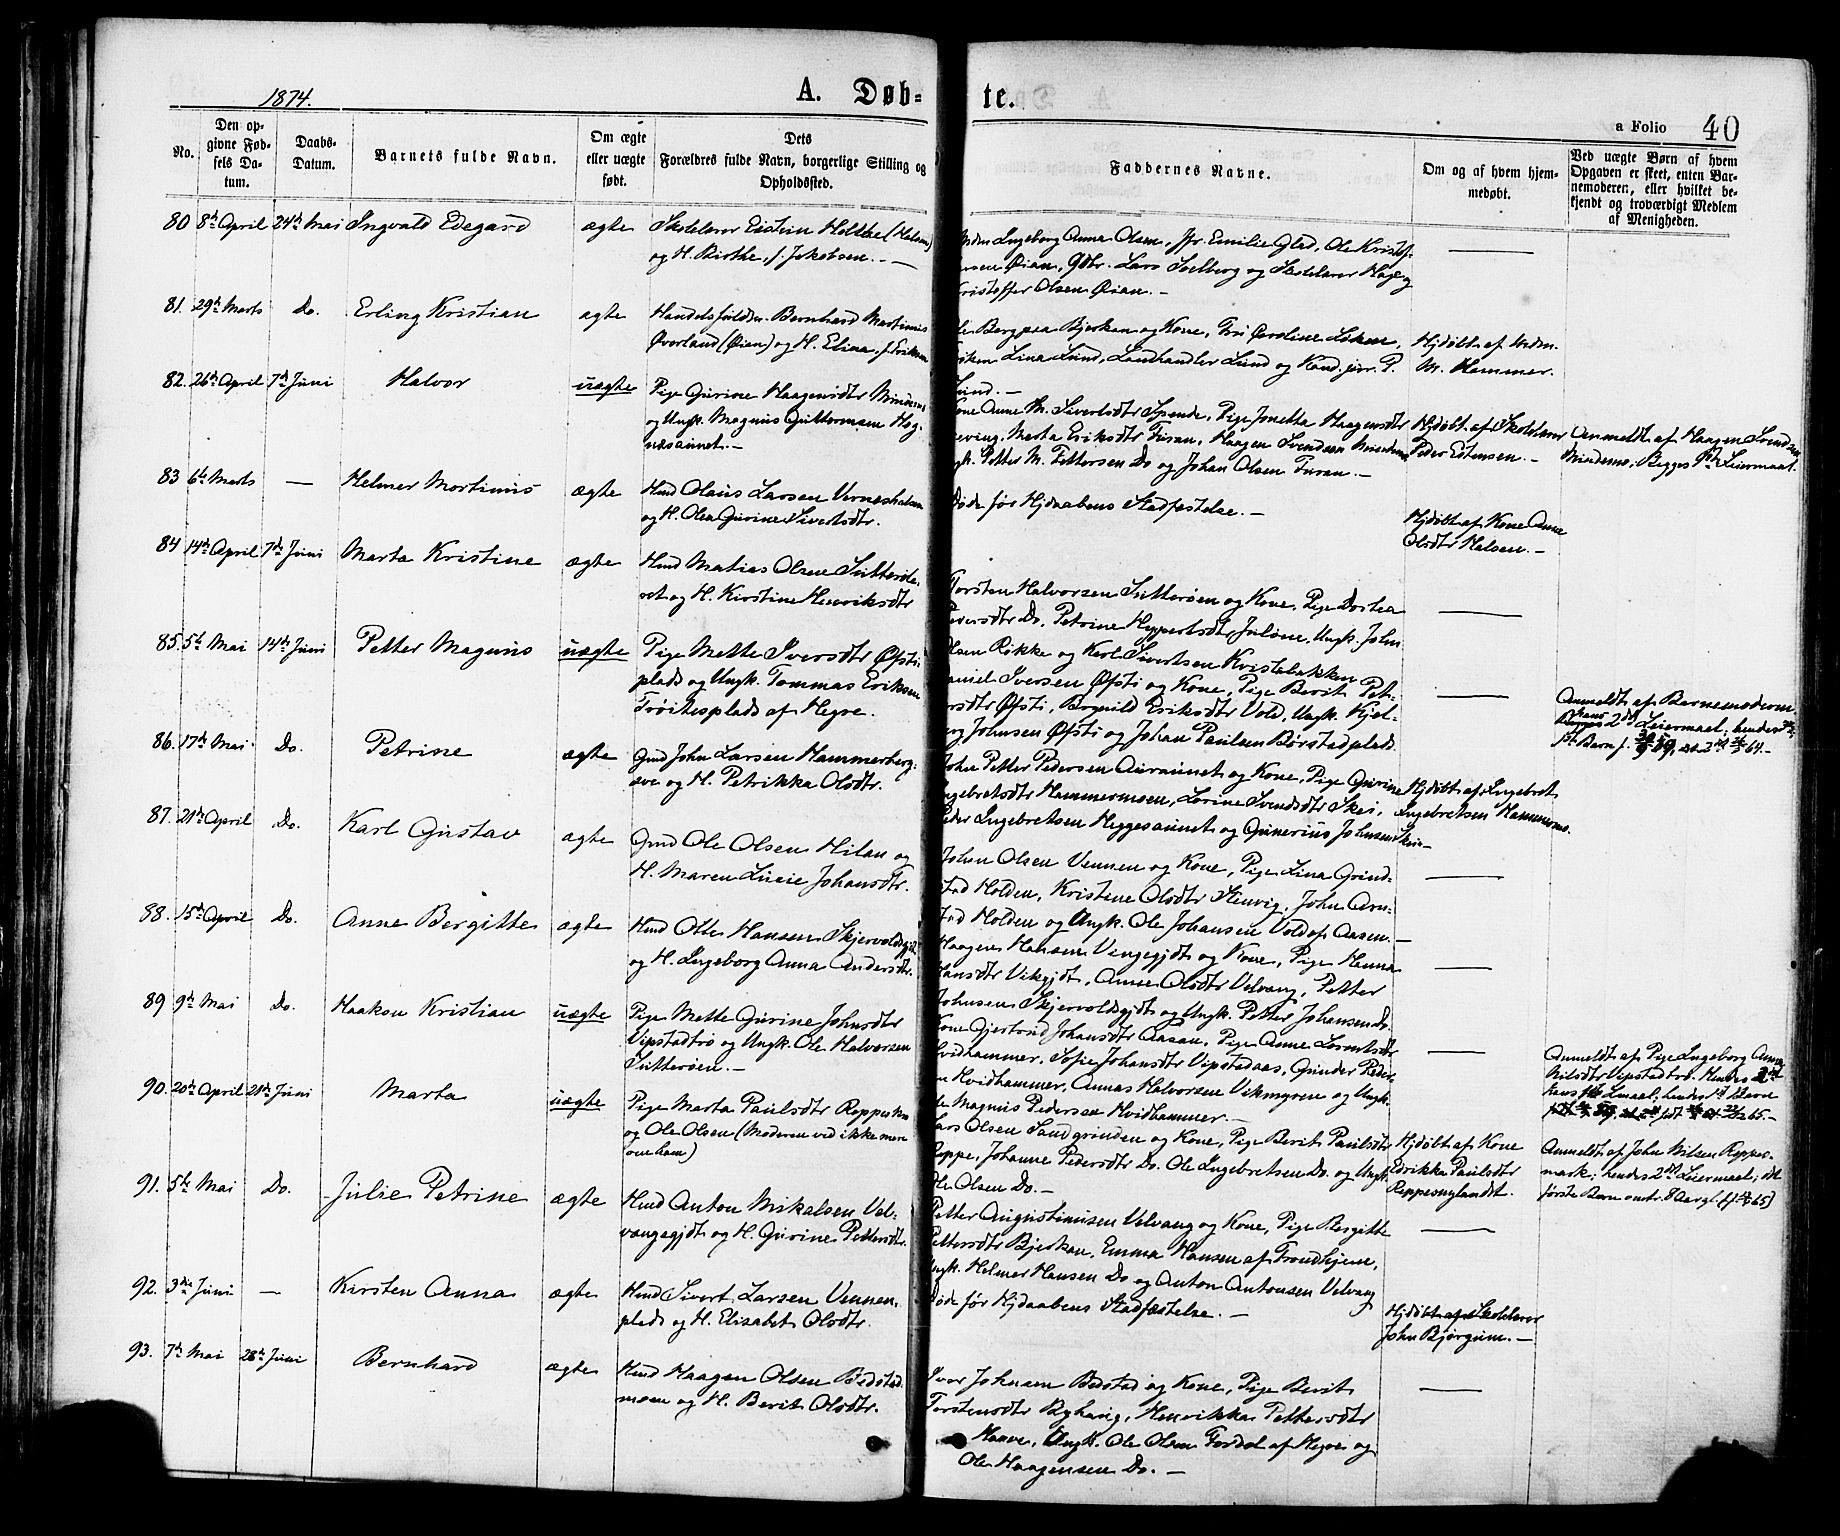 1874.
A. Døb-
te.
a Folio 40
No.
Den op-
givne Fød-
sels Da-
tum.
Daabs-
Datum.
Barnets fulde Navn.
Om ægte
eller uægte
født.
Dets
Forældres fulde Navn, borgerlige Stilling og
Opholdssted.
Faddernes Navne.
Om og af hvem hjem-
medøbt.
Ved uægte Børn af hvem
Opgaven er skeet, enten Bar-
nemoderen, eller hvilket be-
kjendt og troværdigt Medlem
af Menigheden.
80 8de April 24de Mai Ingvald Edegard ægte Skolelærer Eistein
og H. Birthe, f. Jakobsen. —
Ingeborg Anna Olsen, Jfr. Emilie Glad, Ole Kristof-
Øian, Gbr. Lars Solberg og Skolelærer
Kristoffer Olsen Øian. —
81. 29de Marts Do. Erling Kristian ægte Bernhard Martinus
Øverland (Øien) og H. Elina, f. Eriksen
Berg paa Bjerkan og Kone,
Lina Lund, Landhandler Lund og Kand. jur. P.
Lund. —
Hjdøbt af Mdm.
M. Hammer.
82. 26de April 7de Juni Halvor uægte Pige Gurine Haagensdtr
og Ungk. Magnus Guttormsen Heg-
næsaunet. —
Kone Anne M. Sivertsdtr Spende, Pige Jonetta Haagensdtr
Marta Eriksdtr Furan, Haagen Svendsen
Ungk. Petter M. Pettersen Do og Johan Olsen Furan. —
Hjdøbt af Skolelærer
Peder Estensen. —
Anmeldt af Haagen Svendsen
Mindemo, Begges 1ste Leiermaal.
83 6te Marts — Helmer Martinus ægte Hmd Olaus Larsen
og H. Olea Gurine Sivertsdtr.
Døde før Hjdaabens Stadfæstelse. —
Hjdøbt af Kone Anne
Olsdtr Halsen. —
84 14de April 7de Juni Marta Kristine ægte Hmd Matias Olsen
og H. Kirstine Henriksdtr
Torsten Halvorsen Sutterøen og Kone, Pige Dortea
Do, Petrine Heppertsdtr Ungk. John
Olsen Røkke og Karl Sivertsen Kvistebakken
85. 5te Mai 14de Juni Petter Magnus uægte Pige Mette Iversdtr Øfsti-
plads og Ungk. Tommas Eriksen
Trøitesplads af Hegre.
Daniel Iversen Øfsti og Kone, Pige Berit Pet-
ersdtr Øfsti, Bognild Eriksdtr Vold, Ungk. Kjel-
Johnsen Øfsti og Johan Paulsen Børstadplads
Anmeldt af Barnemoderen
2det Leiermaal, hendes
86. 17de Mai Do. Petrine ægte Gmd John Larsen Hammerberg-
og H. Petrikka Olsdtr.
John Petter Pedersen Auraunet og Kone, Pige Gurine
Ingebretsdtr Hammermoen, Lorine Svendsdtr Skei,
Peder Ingebretsen Heggesaunet og Gunerius Johnsen Skei —
Hjdøbt af Ingebret
Ingebretsen Hammermo.
87. 21de April Do. Karl Gustav ægte Gmd Ole Olsen Hilan og
H. Maren Lucie Johansdtr.
John Olsen Vennen og Kone, Pige Lina Grind-
stad Holden, Kristine Olsdtr Stenvig, John Arn-
stad Holden og Ungk. Ole Johansen Vold af Aasen. —
88. 15de April Do. Anne Bergitte ægte Hmd Otto Hansen
og H. Ingeborg Anna Andersdtr.
Haagen Hansen Vingegjdt og Kone, Pige Hanna
Hansdtr Vikgjdt, Anne Olsdtr Velvang, Petter
Johnsen Skjervoldsgjdt og Ungk. Petter Johansen Do.
89 9de Mai Do. Haakon Kristian uægte Pige Mette Gurine Johnsdtr
Vipstadtrø og Ungk. Ole Halvorsen
Sutterøen. —
Kone Gjertrud Johansdtr Aasan, Pige Anne
Hvidhammer, Sofie Johansdtr Vipstadaas, Grinder Peder-
en Hvidhammer, Annas Halvorsen Vikmyren og Ungk.
Ole Magnus Pedersen Hvidhammer. —
Anmeldt af Pige Ingeborg Anna
Nilsdtr Vipstadtrø. Hendes 2det
90. 20de April 28de Juni Marta uægte Pige Marta Paulsdtr
og Ole Olsen (Moderen ved ikke mere
om ham)
Lars Olsen Sandgrinden og Kone, Pige Berit Paulsdtr
Reppe, Johanne Pedersdtr Do. Ole Ingebretsen Do. og Ungk.
Ole Olsen Do. —
Hjdøbt af Kone
Edrikka Paulsdtr
Reppesnylandet.
Anmeldt af John Nilsen Reppes-
mark; hendes 2det Leiermaal; det
første Barn omtr. 8 Aar gl.
91. 5te Mai Do. Julie Petrine ægte Hmd Anton Mikalsen Vel-
vangsgjdt og H. Gurine Pettersdtr.
Petter Augustinusen Velvang og Kone, Pige Bergitte
Pettersdtr Bjerkan, Emma Hansen af Trondhjem,
Ungk. Helmer Hansen Do og Anton Antonsen Velvang
92. 3die Juni — Kirsten Anna ægte Hmd Sivert Larsen Vennen-
plads og H. Elisabet Olsdtr.
Døde før Hjdaabens Stadfæstelse. —
Hjdøbt af Skolelærer
John Bjørgum. —
93. 7de Mai 28de Juni Bernhard ægte Hmd Haagen Olsen Bodstad-
moen og H. Berit Olsdtr.
Ivar Johnsen Bodstad og Kone, Pige Berit
Torstensdtr Byhaug, Henrikka Pettersdtr
Haave, Ungk. Ole Olsen Fordal af Hegre og
Ole Haagensen Do. —